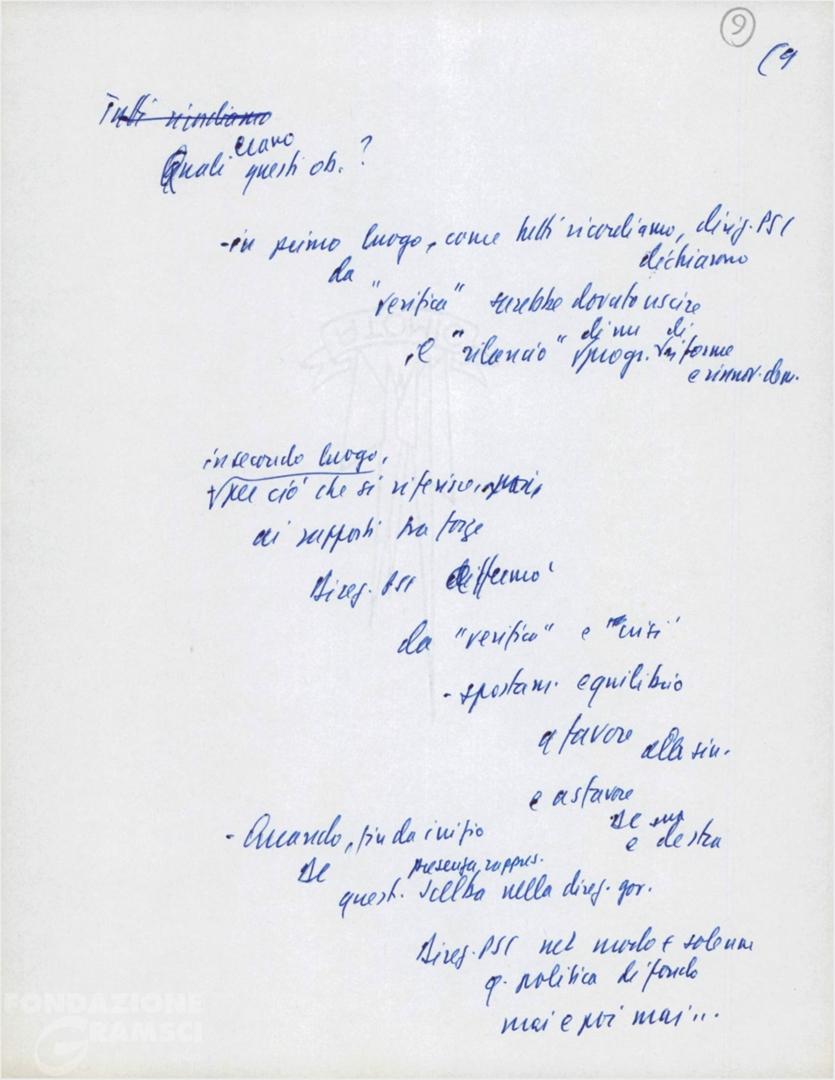 9
(9
Tutti ricordiamo
erano
Quali questi ob.?
- in primo luogo, come tutti ricordiamo, dirig. PSI
dichiarono
da
"verifica" sarebbe dovuto uscire
di un di
il "rilancio" progr. riforme
e rinnov. dem.
in secondo luogo,
per ciò che si riferisce
ai rapporti tra forze
Direz. PSI affermò
da "verifica" e "crisi"
- spostam. equilibrio
a favore alla sin.
e a sfavore
DC
e destra
- Quando, fin da inizio
DC presenza, rappres.
quest. Scelba nella direz. gov.
Direz. PSI nel modo + solenne
q. politica di fondo
mai e poi mai...
FONDAZIONE
GRAMSCI